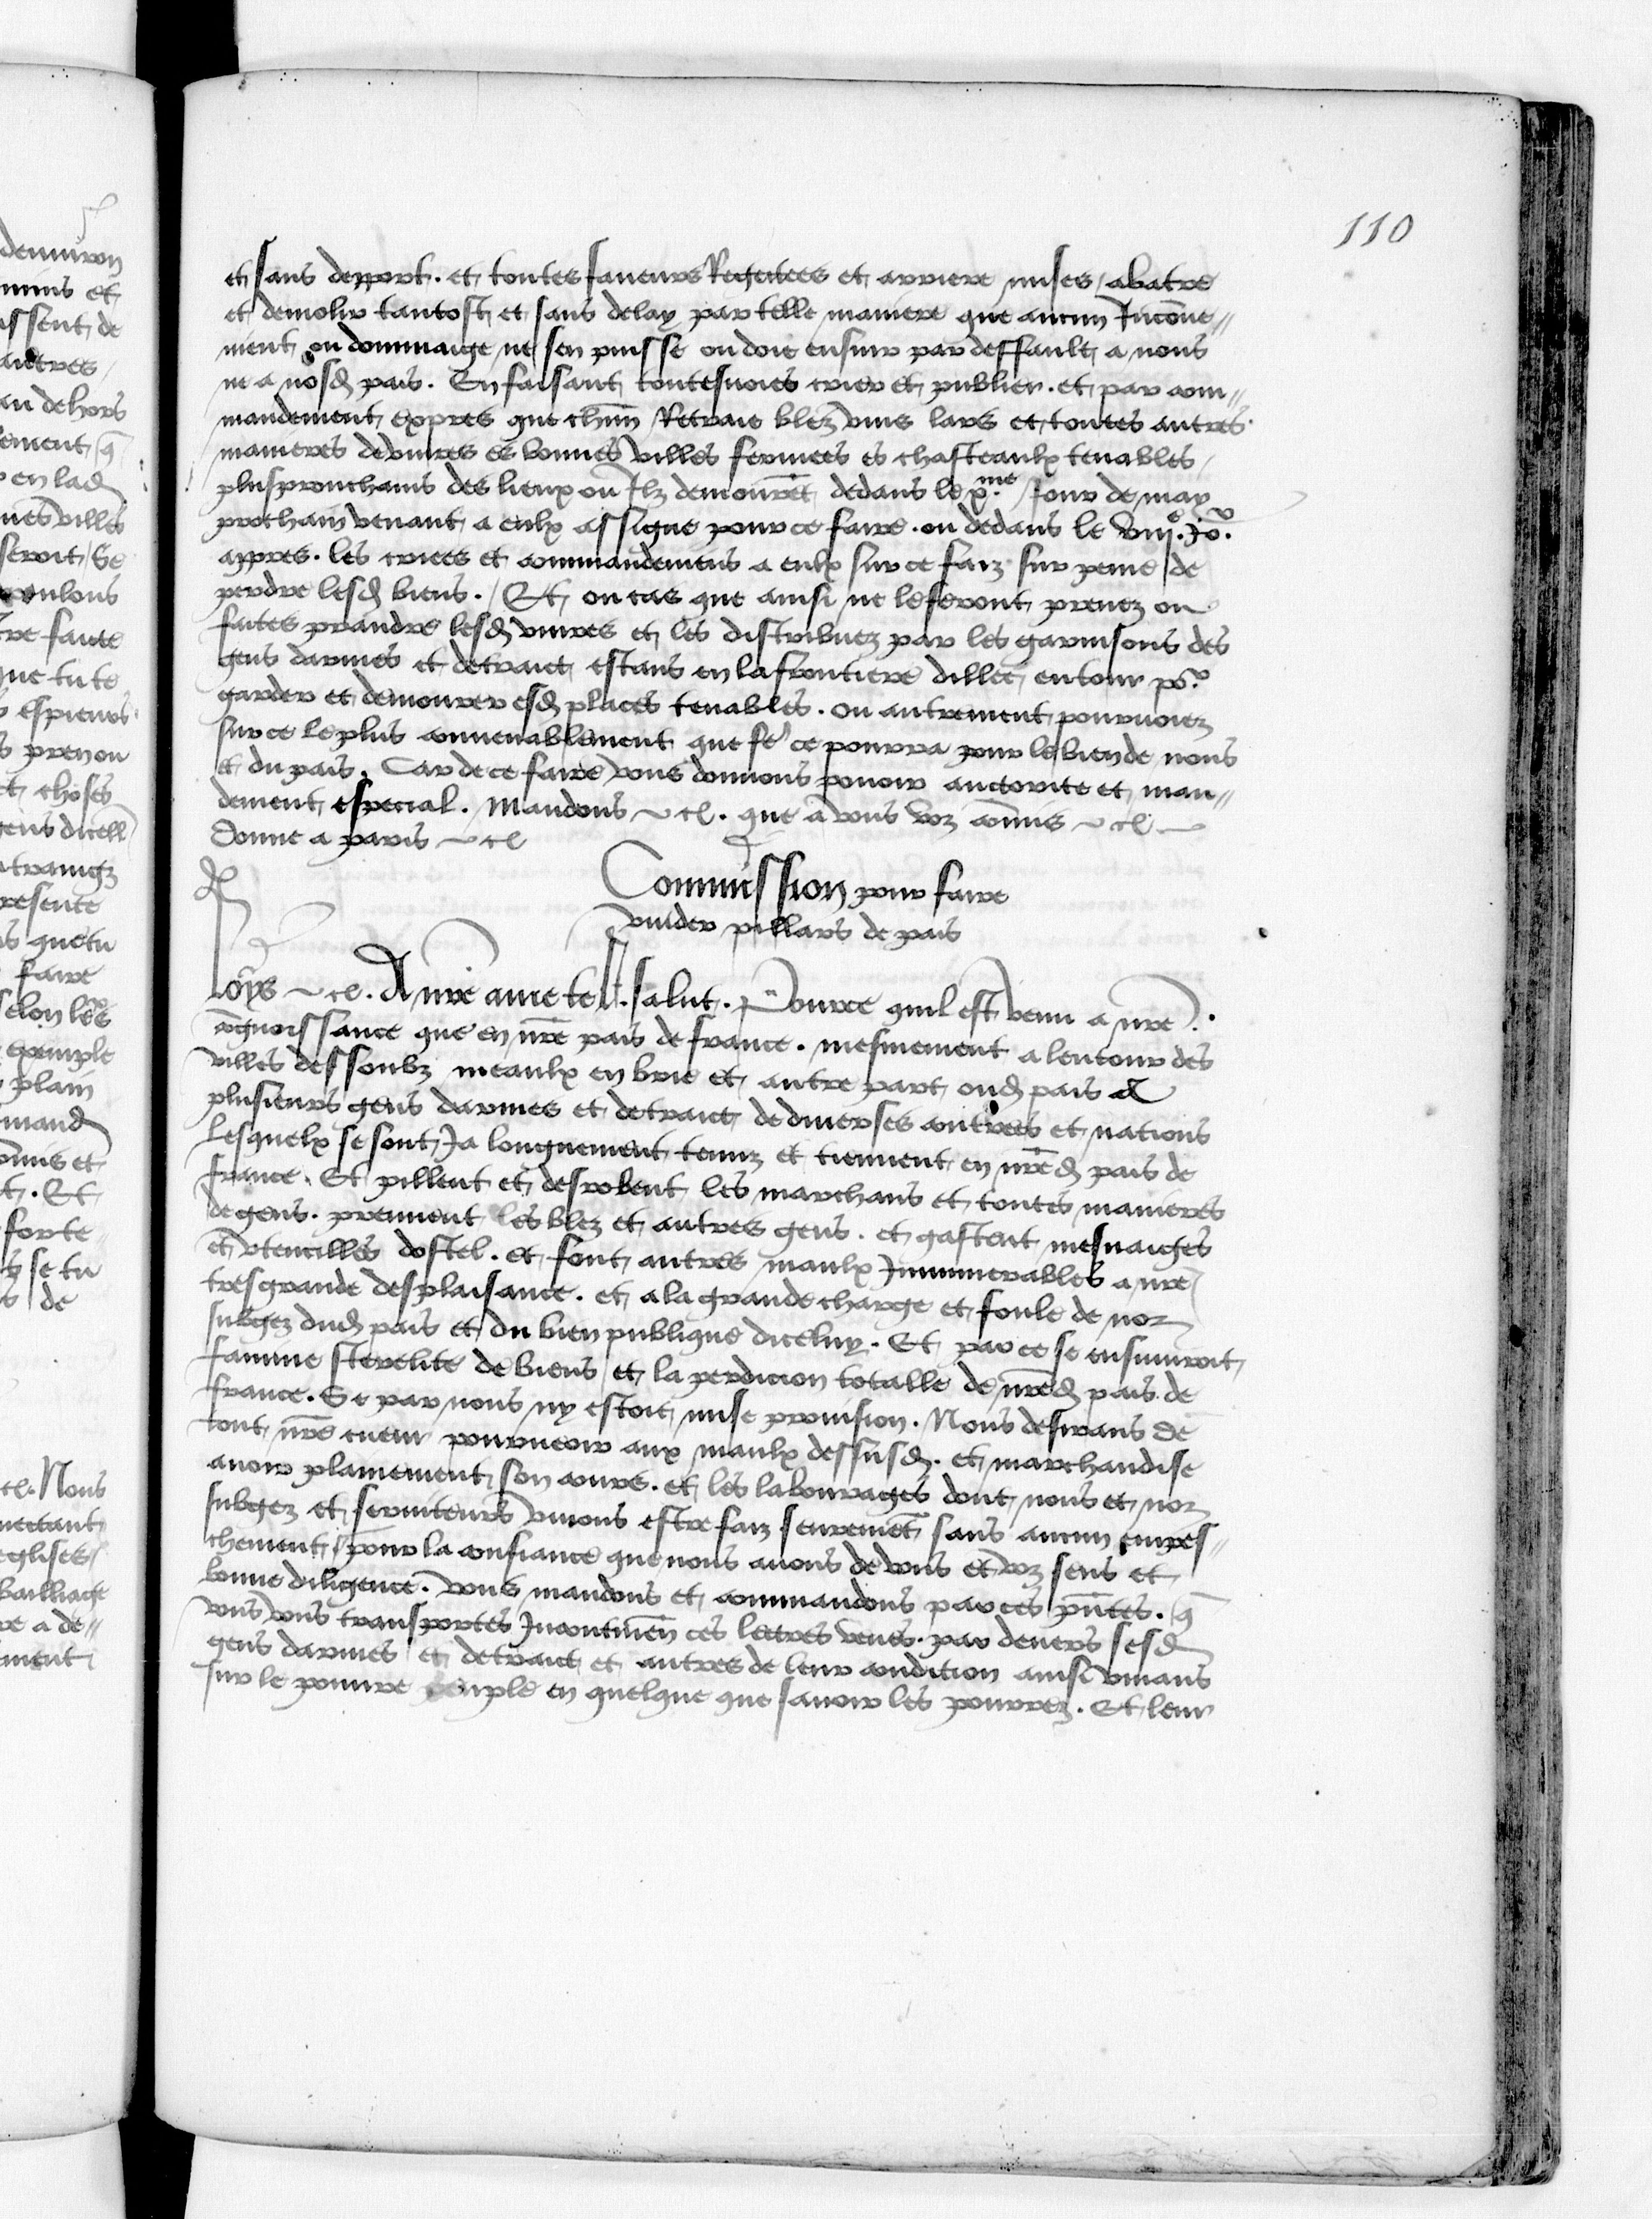 110
et sans depport. et toutes faveurs Regectees et arriere mises / abatre
et demolir tantost et sans delay par telle maniere que aucun Incoṅve〃
nient ou dommaige ne sen puisse ou doie ensuir par deffault a nous
ne a nosd pais. En faisant toutesuoies crier et publier. et par com〃
mandement expres que chūn Retraie blez vins lars et toutes autres
manieres de viures es bonnes villes fermees es chasteaulx tenables /
plusprouchains des lieux ou Ilz demourēt dedans le x.me Jour de may
prochain venant a eulx assigne pour ce faire. ou dedans le viij.e Jo.r
appres. les criees et commandemens a eulx sur ce faiz sur peine de
perdre lesd biens. / Et ou cas que ainsi ne le feront prenez ou
faites prandre lesd viures et les distribuez par les garnisons des
gens darmes et detraict estans en la frontiere dillec entour po.r
garder et demourer esd places tenables. ou autrement pouruoiez
sur ce le plus conuenablement que fe ce pourra pour le bien de nous
et du pais. Car de ce faire vous donnons pouoir auctorite et man〃
dement especial. Mandons etc. que a vous voz cōmis etc
Donne a paris etc
Commission pour faire
vuider pillars de pais
Loys etc. A nrē ame tel. salut. Pource quil est venu a nrē.
cōgnoissance que en nrē pais de france. mesmement a lentour des
villes dessoubz meaulx en brie et autre part oud pais a
plusieurs gens darmes et detraict de diuerses contrees et nations
Lesquelx se sont Ja longuement tenuz et tiennent en nrēd pais de
france. Et pillent et desrobent les marchans et toutes manieres
de gens. prennent les blez et autres gens. et gastent mesnaiges
et vtencilles dostel. et font autres maulx Innumerables a nrē
tresgrande desplaisance. et a la grande charge et foule de noz
subgez dud pais et du bien publique diceluy. Et par ce se ensuiuroit
famine sterelite de biens et la perdicion totalle de nrēd pais de
france. Se par nous ny estoit mise prouision. Nous desirans de
tout nrē cueur pourueoir aux maulx dessusd. et marchandise
auoir plainement son cours. et les labourages dont nous et noz
subgez et seruiteurs viuons estre faiz seuremēt sans aucun empes〃
chement / pour la confiance que nous auons de vous et voz sens et
bonne diligence. vous mandons et commandons par ces pn̄tes. q̄
vous vous transportes Incontinēn ces lectres veues. par deuers sesd
gens darmes et detraict et autres de leur condition ainsi viuans
sur le pouure peuple en quelque que sauoir les pourrez. Et leur